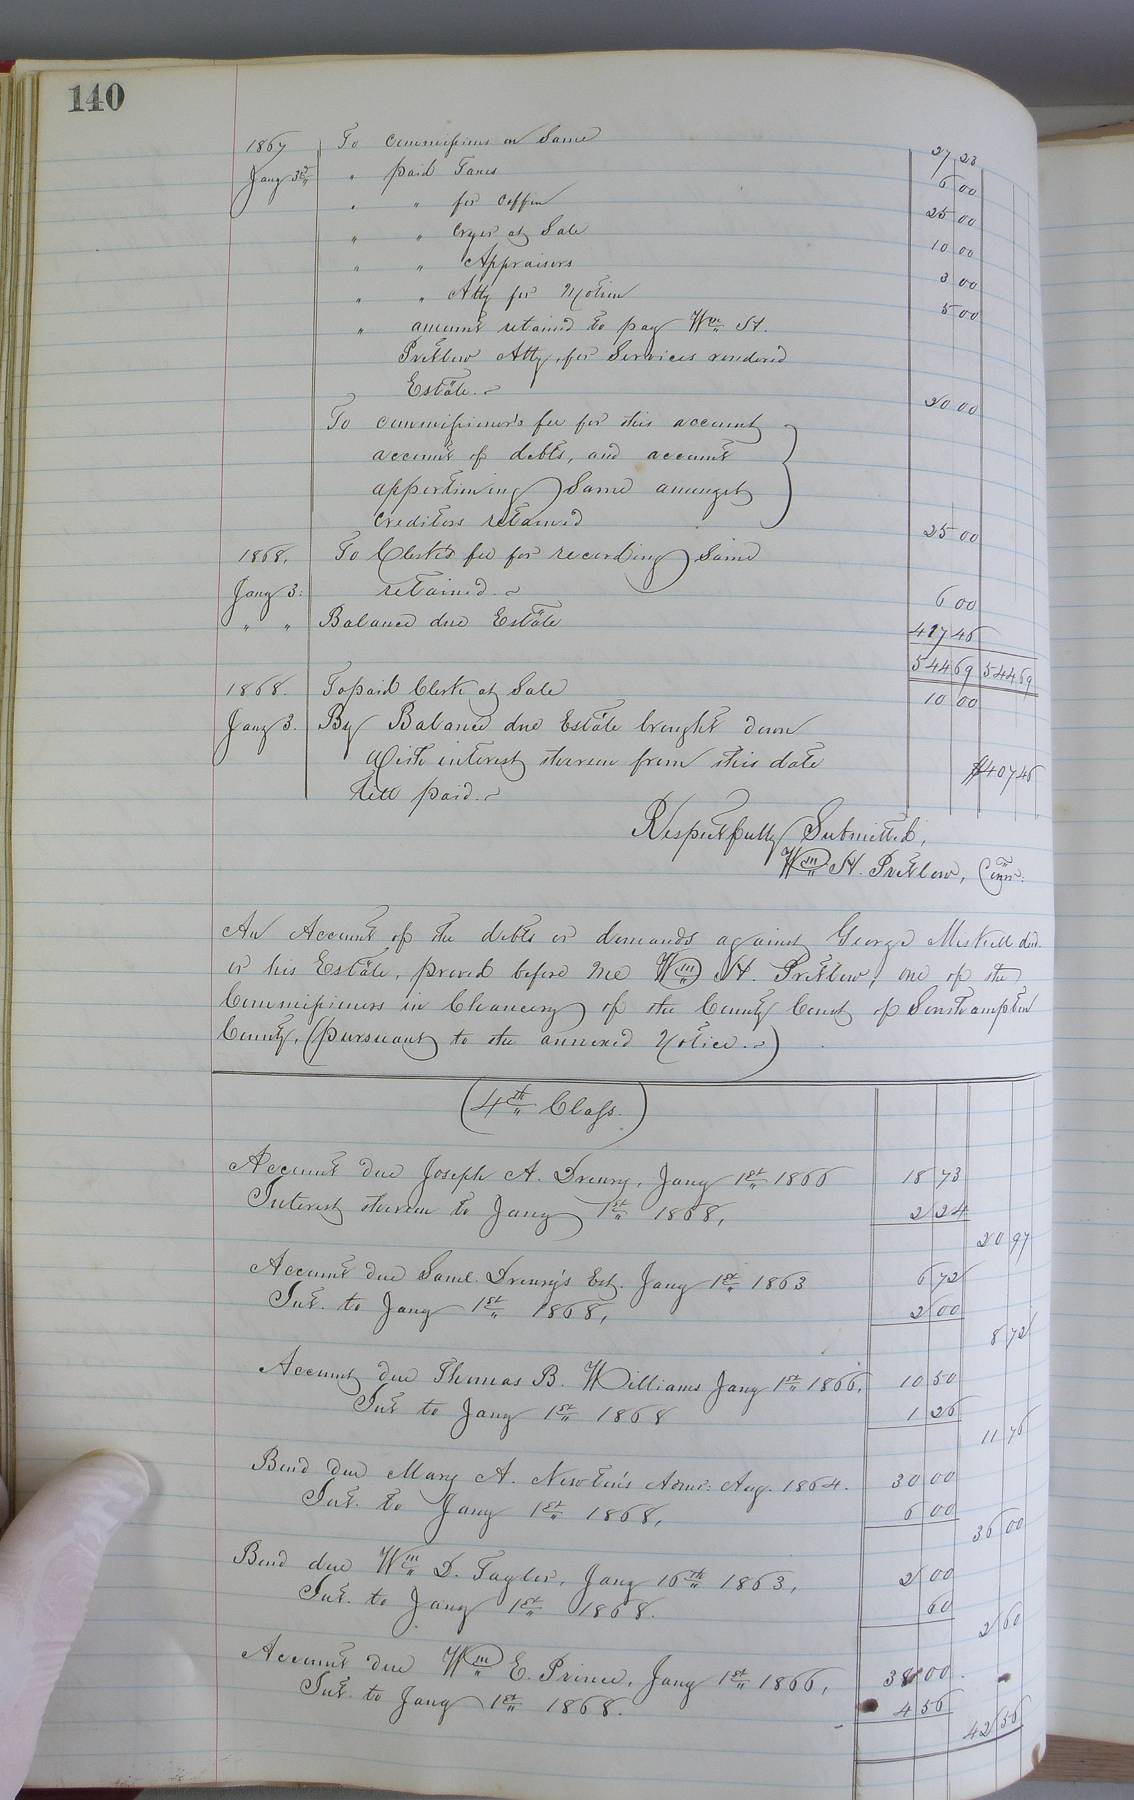 140
1867 To Commissions on Same 27 23
Jany 3rd " paid Taxes 6 00
" " for Coffin 25 00
" " Cryer at Sale 10 00
" " Appraisors 3 00
" " Atty for Notion 5 00
" amount retained to pay Wm H.
Pretlow Atty, for Services rendered
Estate. 20 00
To commissioner's fee for this account
account of debts, and account
apportioning Same amongst
Creditors retained 25 00
1868. To Clerk's fee for recording Same
Jany 3. retained. 6 00
" " Balance due Estate 417 46
544 69 544 69
1868. To paid Clerk at Sale 10 00
Jany 3. By Balance due Estate brought down
With interest thereon from this date $407 46
till paid.
Respectfully Submitted,
Wm H. Pretlow, Comr.
An Account of the debts or demands against George Miskell decd.
or his Estate, proved before me Wm H. Pretlow, one of the
Commissioners in Chancery of the County Court of Southampton
County, (pursuant to the annexed Notice.)
(4th Class.)
Account due Joseph A. Drewry, Jany 1st 1866 18 73
Interest thereon to Jany 1st 1868, 2 24
20 97
Account due Saml. Drewry's Est. Jany 1st 1863 6 72
Int. to Jany 1st 1868, 2 00
8 72
Account due Thomas B. Williams Jany 1st 1866, 10 50
Int to Jany 1st 1868 1 26
11 76
Bond due Mary A. Newton's Admr. Aug. 1864. 30 00
Int. to Jany 1st 1868, 6 00
36 00
Bond due Wm D. Taylor, Jany 16th 1863, 2 00
Int. to Jany 1st 1868. 60
2 60
Account due Wm E. Prince, Jany 1st 1866, 38 00
Int. to Jany 1st 1868. 4 56
42 56